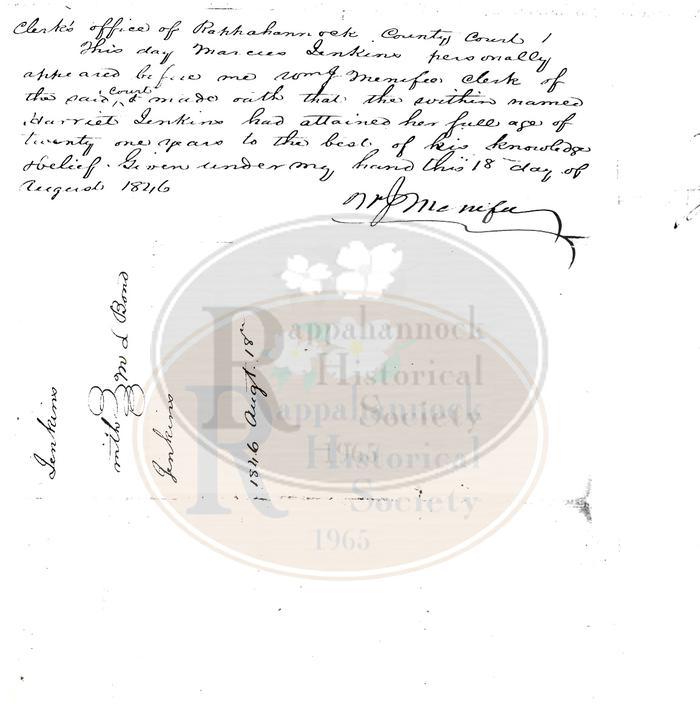 Clerk's office of Rappahannock County Court /
This day Marcus Jenkins personally
appeared before me Wm J Menifee Clerk of
the said Court & made oath that the within named
Harriet Jenkins had attained her full age of
twenty one years to the best of his knowledge
& belief. Given under my hand this 18 day of
August 1846
Wm J Menifee
Jenkins
with
M L Bond
Jenkins
1846 Augt. 18th
Rappahannock
Historical
Society
1965
Rappahannock
Historical
Society
1965